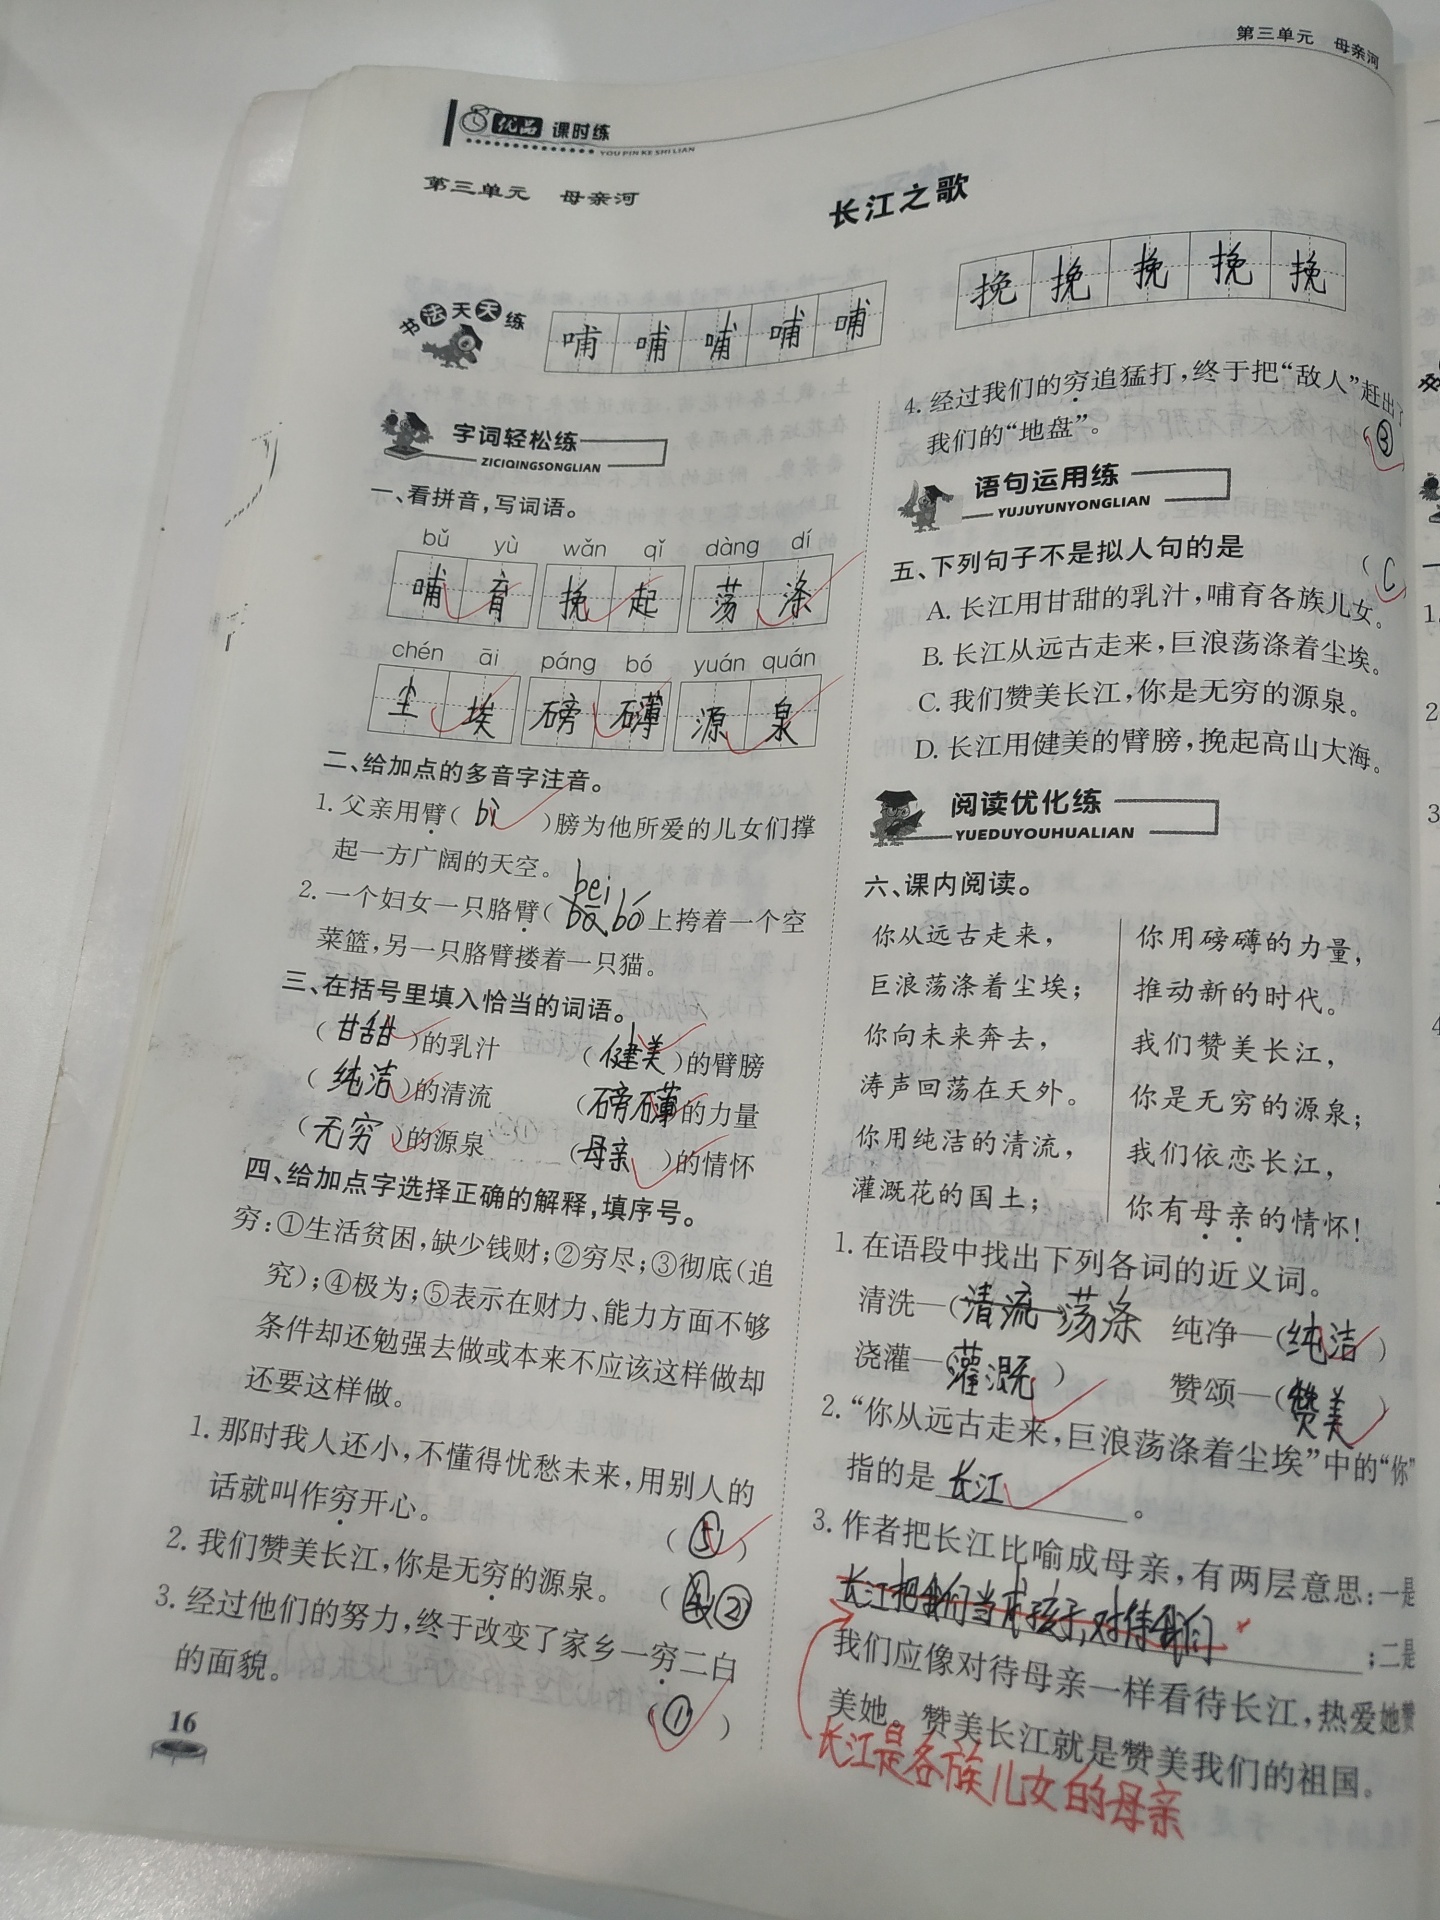 第三单元 母亲河
优品 课时练
YOU PIN KE SHI LIAN
第三单元 母亲河
长江之歌
书法天天练
哺哺哺哺哺
挽挽挽挽挽
字词轻松练
ZICIQINGSONGLIAN
一、看拼音,写词语。
bǔ yù wǎn qǐ dàng dí
哺育 挽起 荡涤
chén āi páng bó yuán quán
尘埃 磅礴 源泉
二、给加点的多音字注音。
1. 父亲用臂( bì )膀为他所爱的儿女们撑
起一方广阔的天空。
bei
2. 一个妇女一只胳臂( bó 上挎着一个空
菜篮,另一只胳臂搂着一只猫。
三、在括号里填入恰当的词语。
(甘甜)的乳汁 (健美)的臂膀
(纯洁)的清流 (磅礴的力量
(无穷)的源泉 (母亲)的情怀
四、给加点字选择正确的解释,填序号。
穷:①生活贫困,缺少钱财;②穷尽;③彻底(追
究);④极为;⑤表示在财力、能力方面不够
条件却还勉强去做或本来不应该这样做却
还要这样做。
1. 那时我人还小,不懂得忧愁未来,用别人的
话就叫作穷开心。
(⑤)
2. 我们赞美长江,你是无穷的源泉。 (②
3. 经过他们的努力,终于改变了家乡一穷二白
的面貌。
(①)
16
4. 经过我们的穷追猛打,终于把“敌人”赶出了
我们的“地盘”。
(③
语句运用练
YUJUYUNYONGLIAN
五、下列句子不是拟人句的是 (C
A. 长江用甘甜的乳汁,哺育各族儿女。
B. 长江从远古走来,巨浪荡涤着尘埃。
C. 我们赞美长江,你是无穷的源泉。
D. 长江用健美的臂膀,挽起高山大海。
阅读优化练
YUEDUYOUHUALIAN
六、课内阅读。
你从远古走来,
巨浪荡涤着尘埃;
你向未来奔去,
涛声回荡在天外。
你用纯洁的清流,
灌溉花的国土;
你用磅礴的力量,
推动新的时代。
我们赞美长江,
你是无穷的源泉;
我们依恋长江,
你有母亲的情怀!
1. 在语段中找出下列各词的近义词。
清洗—(清流 荡涤 纯净—(纯洁)
浇灌—(灌溉) 赞颂—(赞美)
2. “你从远古走来,巨浪荡涤着尘埃”中的“你”
指的是 长江 。
3. 作者把长江比喻成母亲,有两层意思:一是
长江把我们当成孩子,对待我们 ;二是
我们应像对待母亲一样看待长江,热爱她赞
美她。赞美长江就是赞美我们的祖国。
长江是各族儿女的母亲